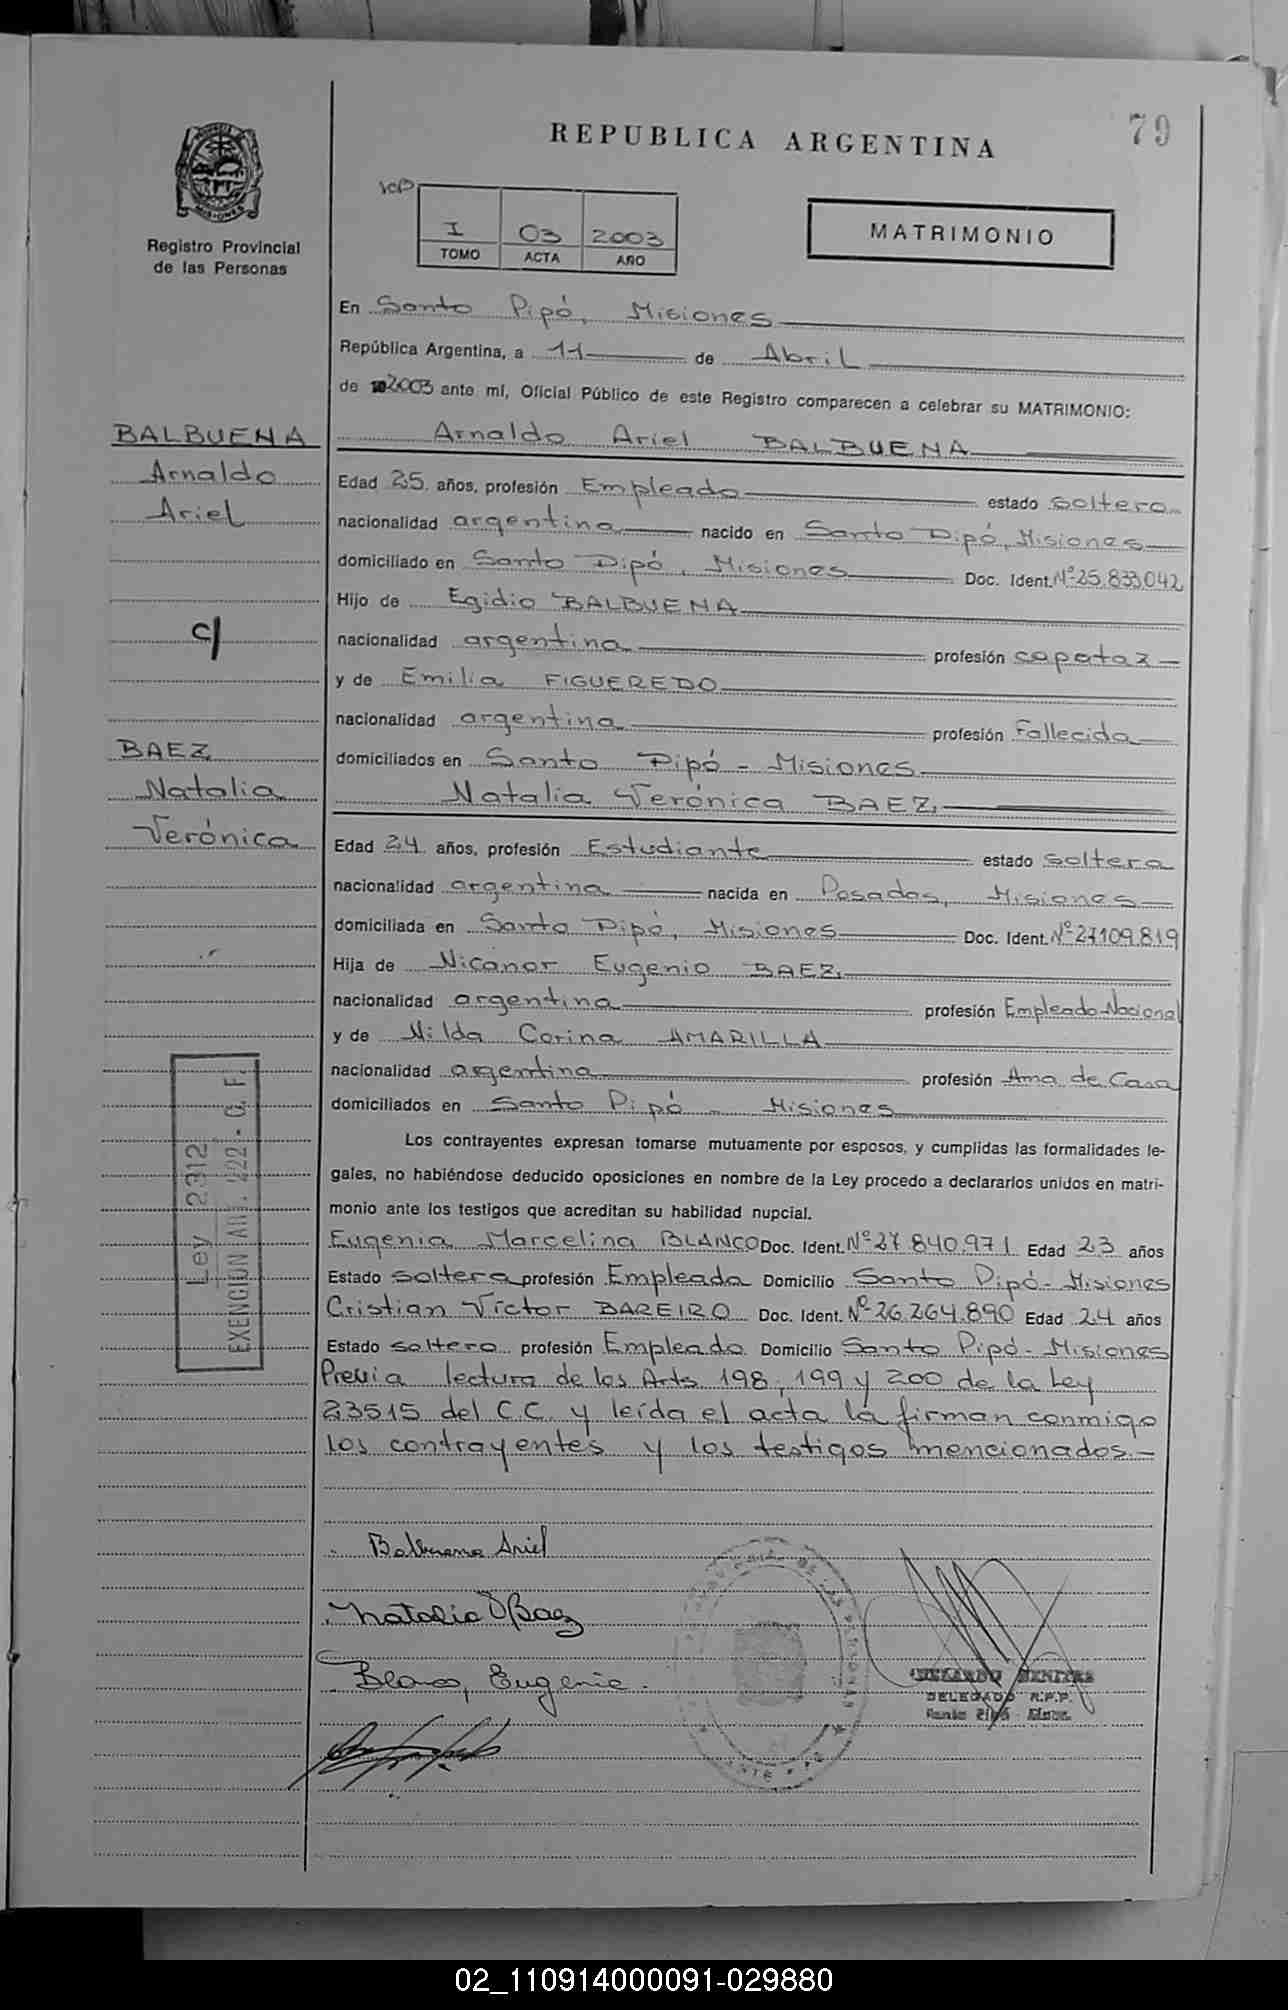 79
REPUBLICA ARGENTINA
MISIONES
Registro Provincial
de las Personas
I 03 2003
TOMO ACTA AÑO
MATRIMONIO
En Santo Pipó, Misiones
República Argentina, a 11 de Abril
de 2003 ante mí, Oficial Público de este Registro comparecen a celebrar su MATRIMONIO:
BALBUENA
Arnaldo
Ariel
c/
BAEZ
Natalia
Verónica
Arnaldo Ariel BALBUENA
Edad 25 años, profesión Empleado estado soltero
nacionalidad argentina nacido en Santo Pipó, Misiones
domiciliado en Santo Pipó, Misiones Doc. Ident. Nº 25.833.042
Hijo de Egidio BALBUENA
nacionalidad argentina profesión capataz
y de Emilia FIGUEREDO
nacionalidad argentina profesión Fallecida
domiciliados en Santo Pipó - Misiones
Natalia Verónica BAEZ
Edad 24 años, profesión Estudiante estado soltera
nacionalidad argentina nacida en Posadas, Misiones
domiciliada en Santo Pipó, Misiones Doc. Ident. Nº 27.109.819
Hija de Nicanor Eugenio BAEZ
nacionalidad argentina profesión Empleado Nacional
y de Nilda Corina AMARILLA
nacionalidad argentina profesión Ama de Casa
domiciliados en Santo Pipó - Misiones
Los contrayentes expresan tomarse mutuamente por esposos, y cumplidas las formalidades le-
gales, no habiéndose deducido oposiciones en nombre de la Ley procedo a declararlos unidos en matri-
monio ante los testigos que acreditan su habilidad nupcial.
Eugenia Marcelina BLANCO Doc. Ident. Nº 27.840.971 Edad 23 años
Estado soltera profesión Empleada Domicilio Santo Pipó - Misiones
Cristian Víctor BAREIRO Doc. Ident. Nº 26.264.890 Edad 24 años
Estado soltero profesión Empleado Domicilio Santo Pipó - Misiones
Previa lectura de los Arts 198, 199 y 200 de la Ley
23515 del C.C. y leída el acta la firman conmigo
los contrayentes y los testigos mencionados.-
Ley 2312
EXENCION ART. 222 - C. F.
Balbuena Ariel
Natalia V Baez
Blanco, Eugenia.
BENITEZ
DELEGADO R.P.P.
Santo Pipó - Mnes.
02_110914000091-029880